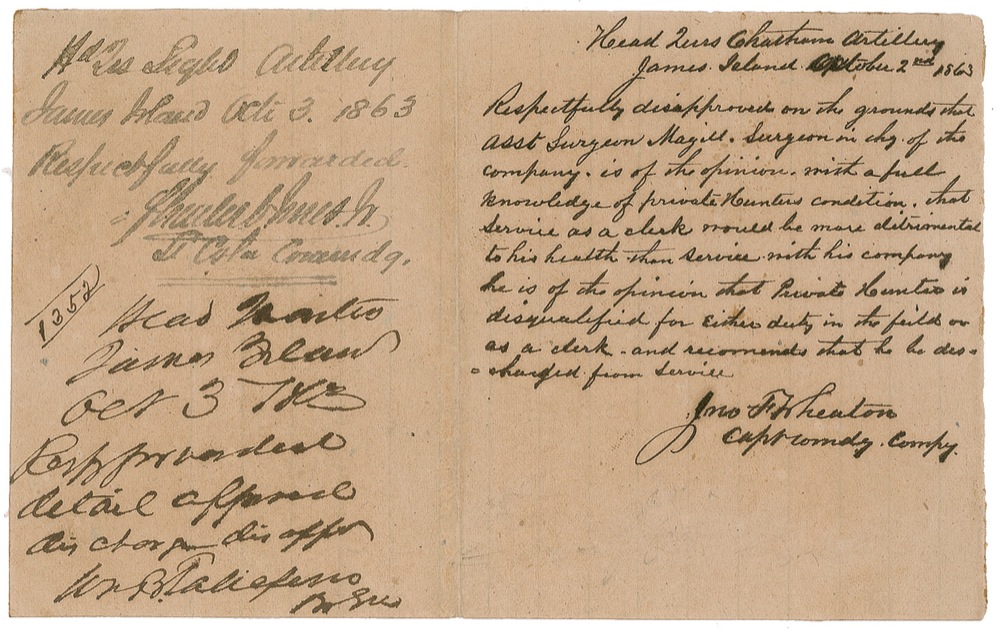 Hd Qrs Light Artillery
James Island Oct 3. 1863
Respectfully forwarded.
Lt Col Comndg.
1352
Head Quarters
James Island
Oct 3 1863
Resp forwarded
detail approved
discharge disappd
Wm B Taliaferro
Br Gen
Head Qurs Chatham Artillery
James Island October 2nd 1863
Respectfully disapproved on the grounds that
Asst Surgeon Magill. Surgeon in chg. of the
company. is of the opinion. with a full
knowledge of private Hunters condition. that
Service as a clerk would be more ditrimental
to his health than service with his company
he is of the opinion that Private Hunter is
disqualified for Either duty in the feild or
as a clerk. and recomends that he be dis-
-charged from service
Jno F Wheaton
Capt comdg. Compy.